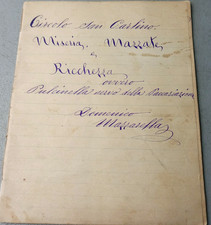 Circolo San Carlino.
Miseria, Mazzate
e
Ricchezza
ovvero
Pulcinella servo della
Domenico
Mazzarella